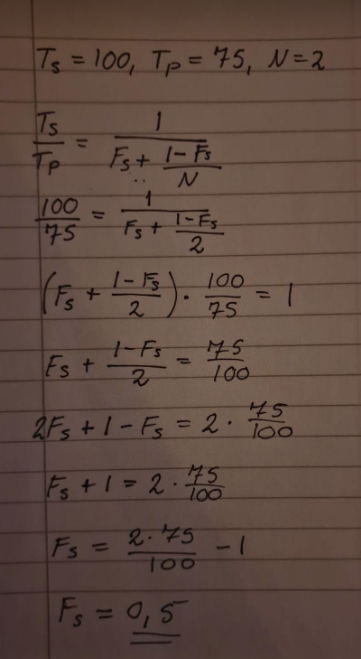 Ts = 100, Tp = 75, N = 2
Ts/Tp = 1/(Fs + (1-Fs)/N)
100/75 = 1/(Fs + (1-Fs)/2)
(Fs + (1-Fs)/2) · 100/75 = 1
Fs + (1-Fs)/2 = 75/100
2Fs + 1 - Fs = 2 · 75/100
Fs + 1 = 2 · 75/100
Fs = (2·75)/100 - 1
Fs = 0,5